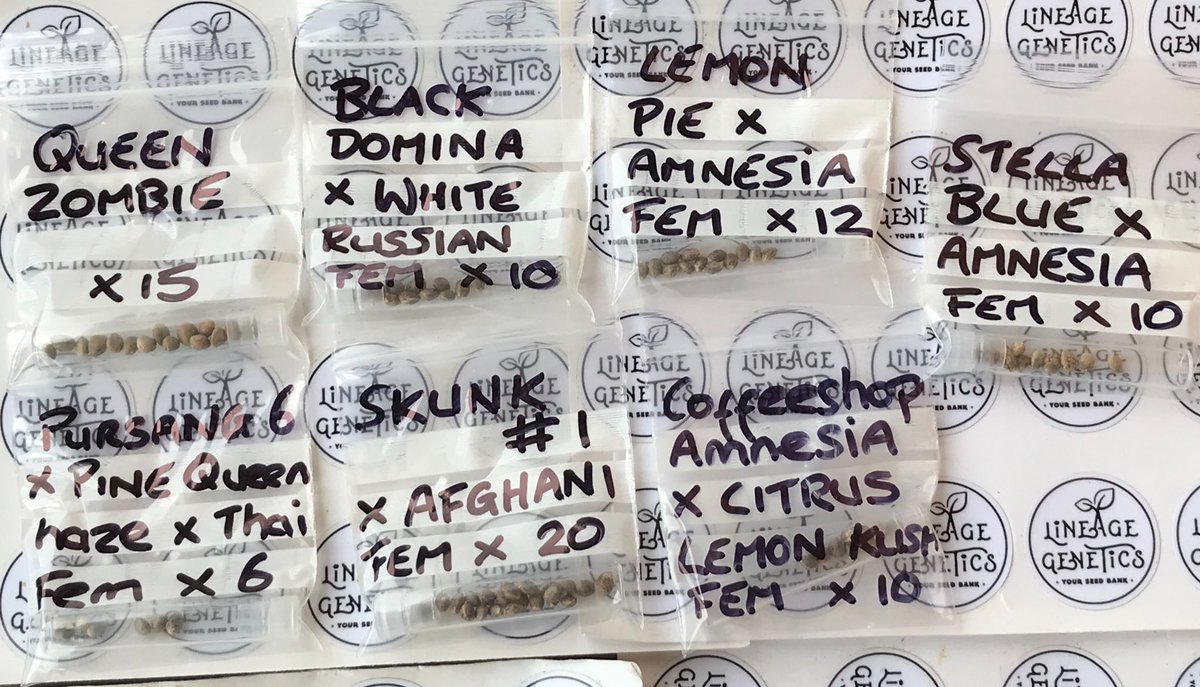 QUEEN
ZOMBIE
x 15
BLACK
DOMINA
x WHITE
RUSSIAN
FEM x 10
LEMON
PIE x
AMNESiA
FEM x 12
STELLA
BLUE x
AMNESIA
FEM x 10
PURSANG 6
x PINE Queen
haze x Thai
Fem x 6
SKUNK
#1
x AFGHANI
FEM x 20
Coffeeshop
Amnesia
x CITRUS
LEMON KUSH
FEM x 10
LiNEAGE
GENETiCS
• YOUR SEED BANK •